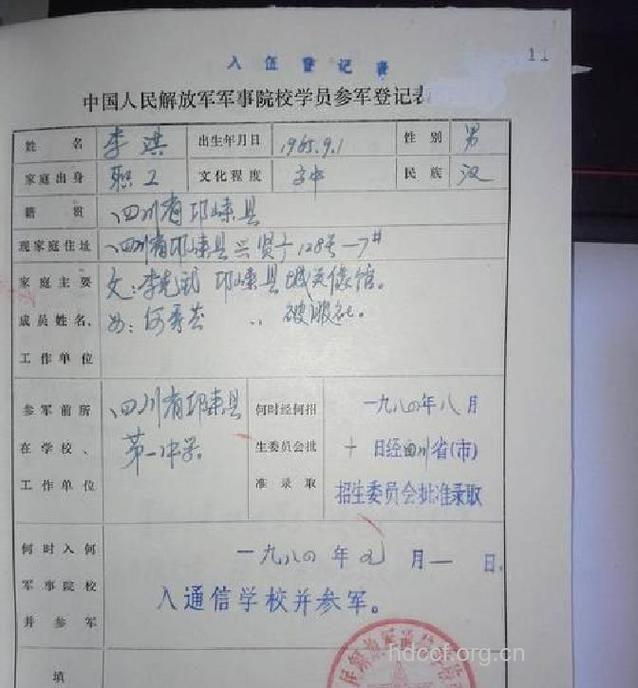 11
入伍登记表
中国人民解放军军事院校学员参军登记表
姓名 李淇 出生年月日 1965.9.1 性别 男
家庭出身 职工 文化程度 高中 民族 汉
籍贯 四川省邛崃县
现家庭住址 四川省邛崃县兴贤 128号—7#
家庭主要
成员姓名、
工作单位
父：李 邛崃县城关 馆。
母：何秀芸 〃 被服社。
参军前所
在学校、
工作单位
四川省邛崃县
第一中学
何时经何招
生委员会批
准录取
一九八四年八月
十日经四川省(市)
招生委员会批准录取
何时入何
军事院校
并参军
一九八四年九月一日
入通信学校并参军。
填
hdccf.org.cn